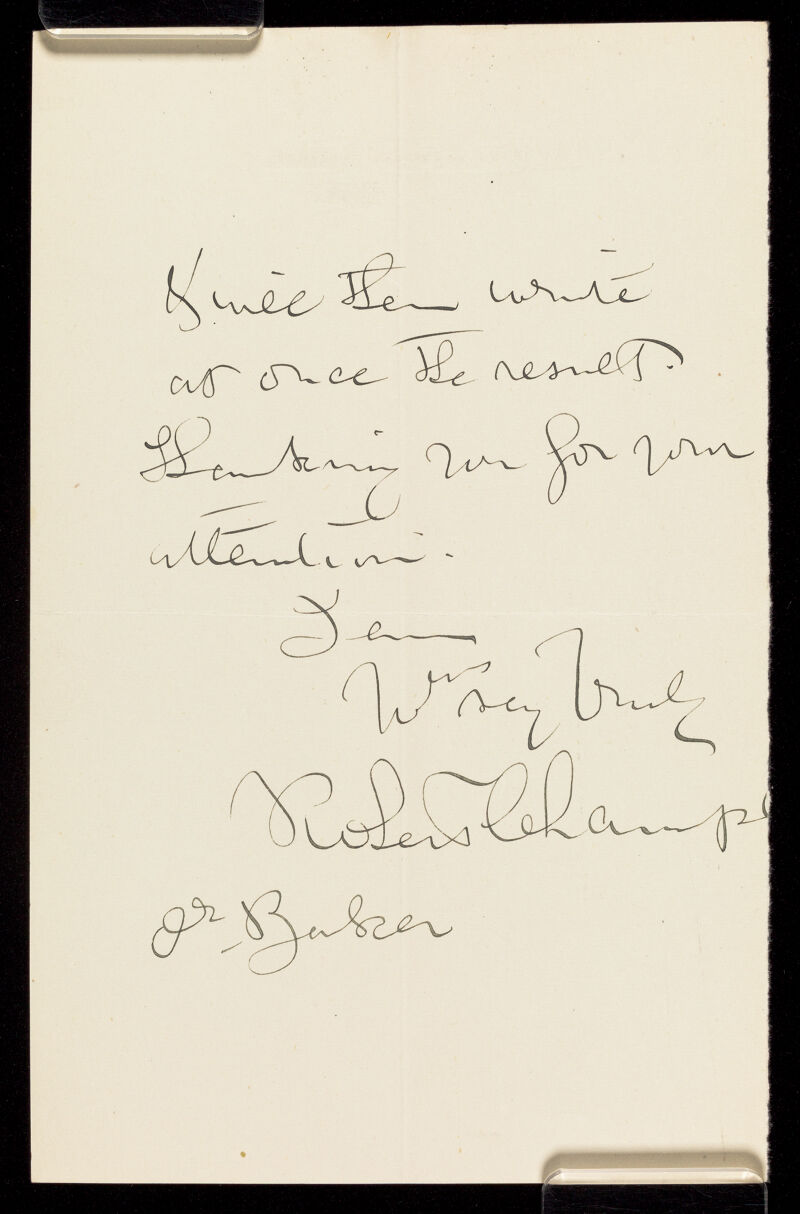 I will then write
at once the result.
Thanking you for your
attention.
I am
Very Truly
Robert
Dr Baker